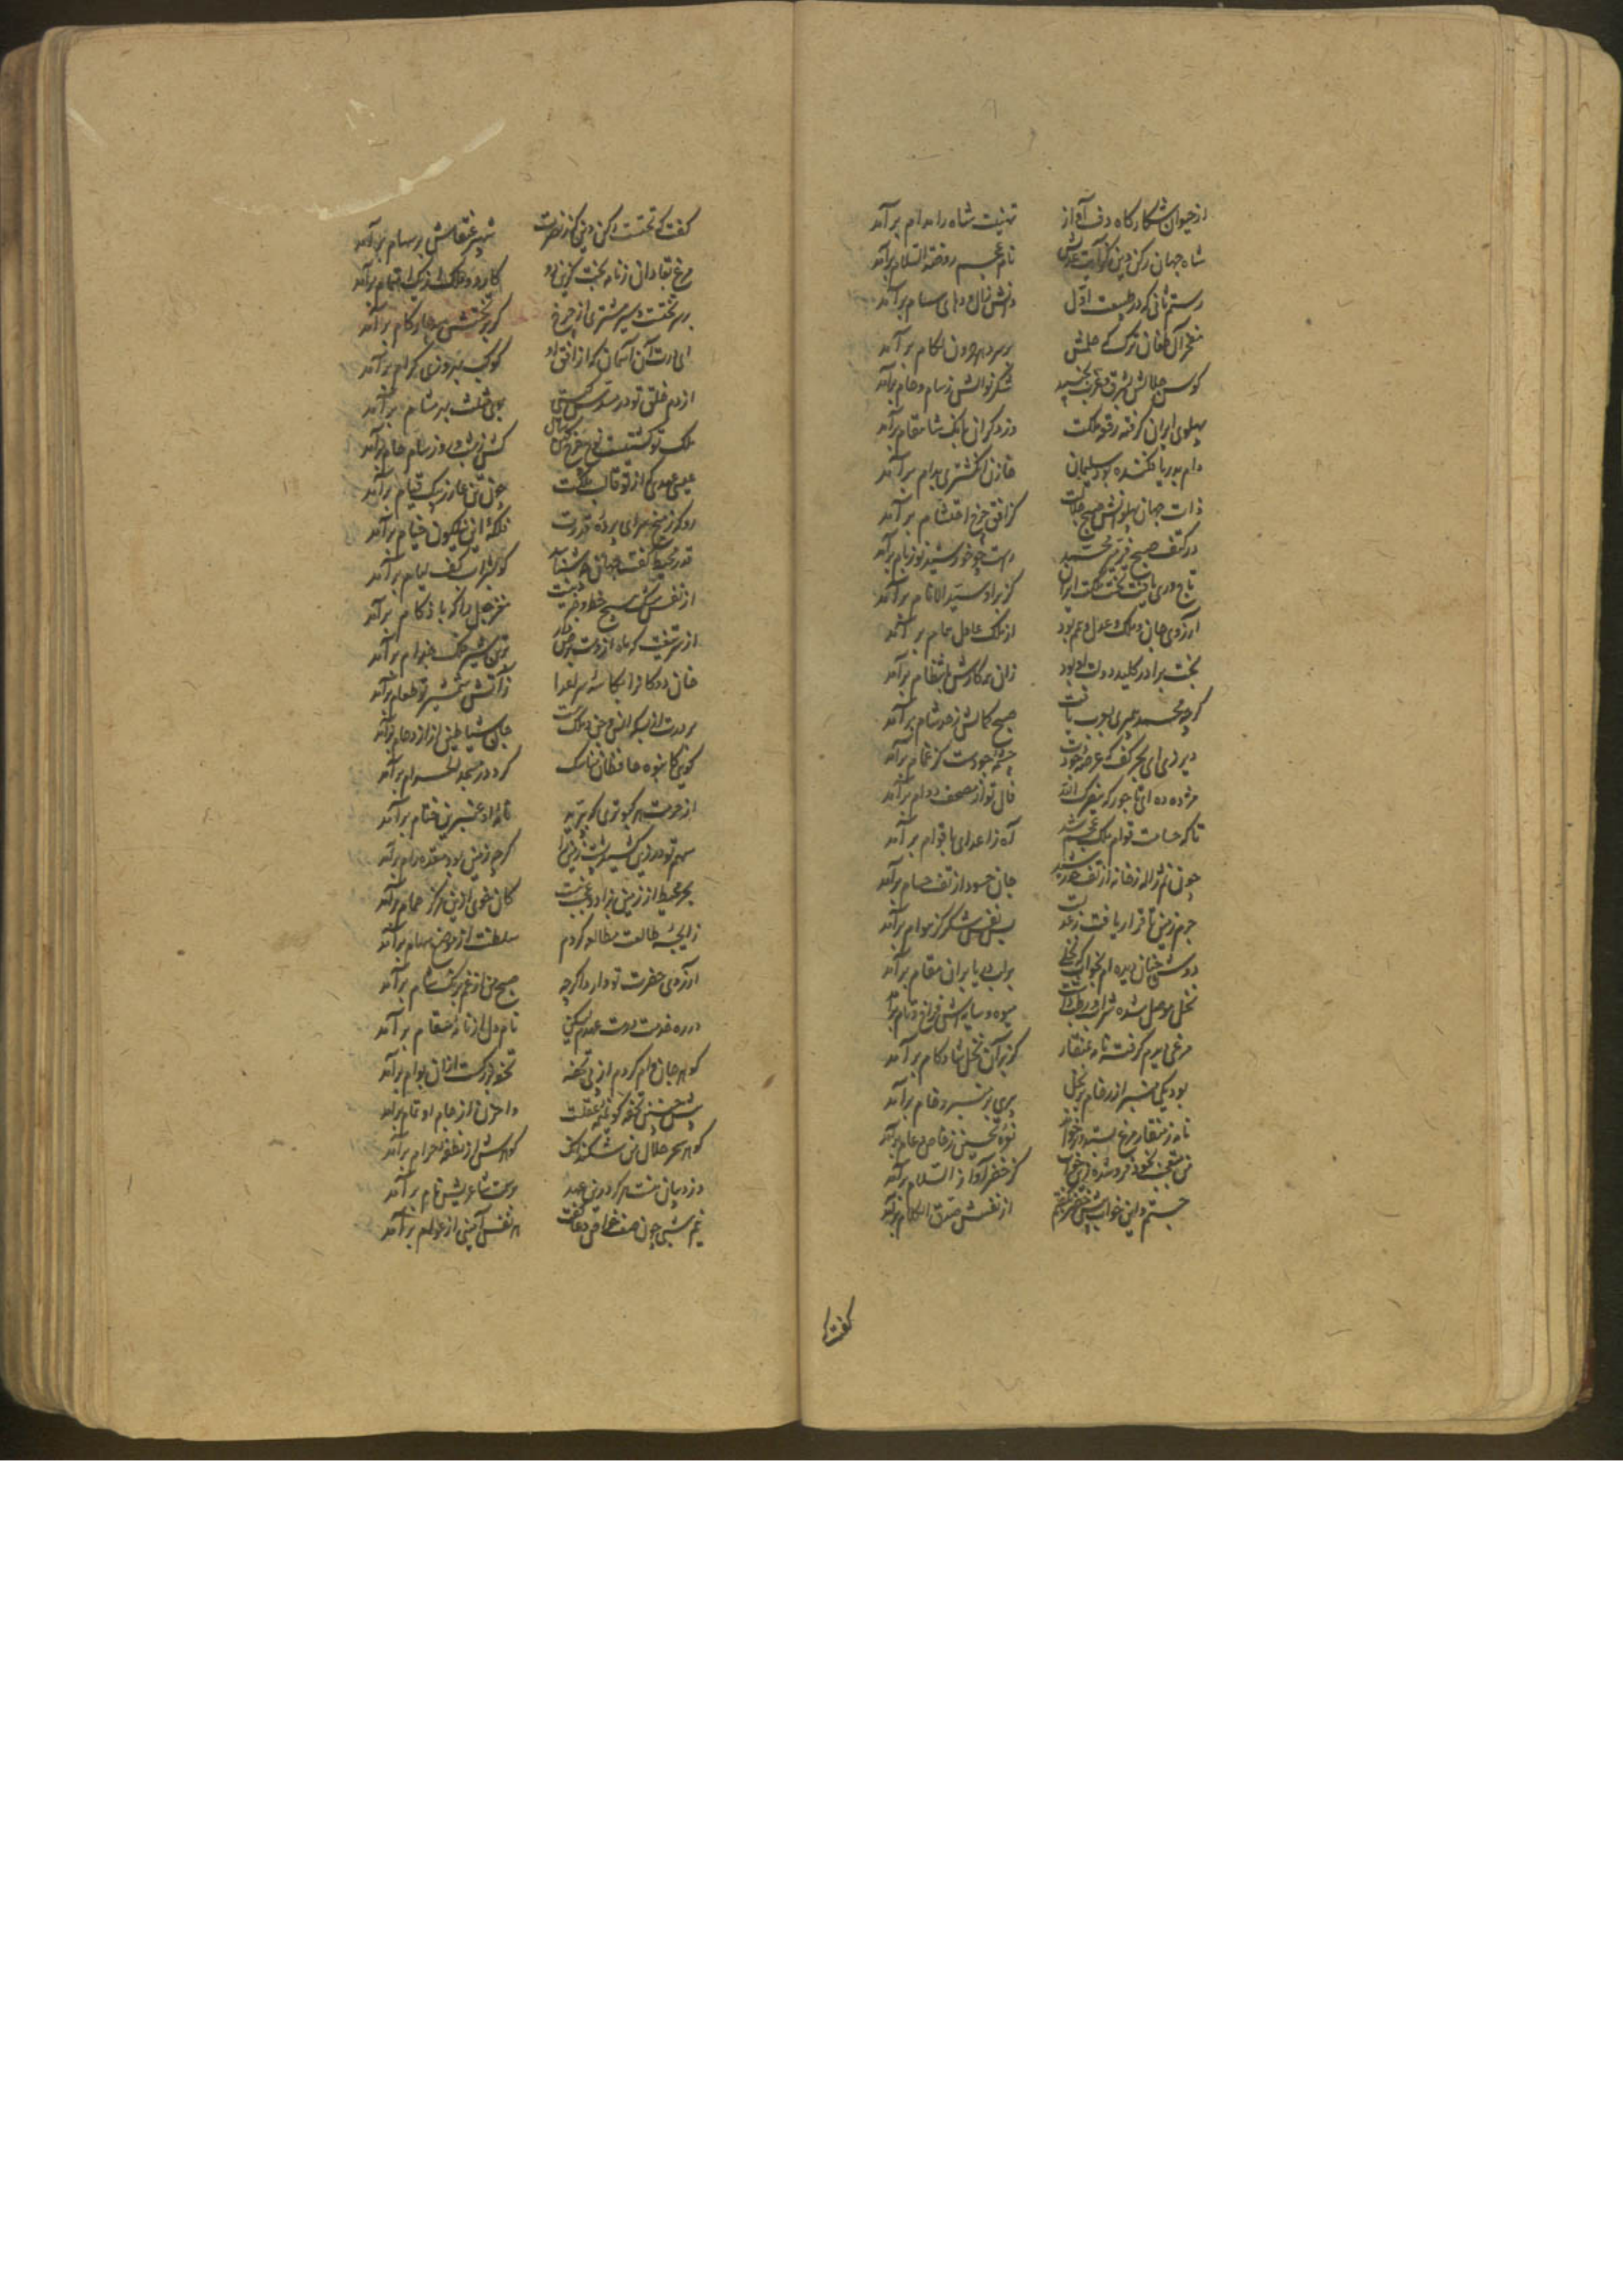 از حیوان شکارگاه دف آواز تهنیت شاه را مدام برآمد
شاه جهان رکن دین که آیت عدلش نام عجم روضة السلام برآمد
رستم ثانی که در طبیعت اول دانش زال و دهای سام برآمد
مفخر آل طغان ترک که حلمش بر سر بهرون لگام برآمد
کوس جلالش بشرق و غرب بجنبید شکر نوالش ز سام و حام برآمد
پهلوی ایران گرفت رقعه ملکت دزدگران بانگ شامقام برآمد
دام بدریا فکنده بود سلیمان خازن انگشتری بدام برآمد
ذات جهان پهلوانش صبح جلالت کز افق چرخ احتشام برآمد
در کنف صبح فر میر محمد راست چو خورشید نورنام برآمد
تاج وری یافت تخت ملکت ایران کز بر او سید الانام برآمد
آرزوی جان ملک عدل و عمر بود از ملک عادل تمام برآمد
بخت برادر کلید دولت او بود زان همه کارش بانتظام برآمد
گرچه محمد پیمبری بعرب یافت صبح کمالش ز حد شام برآمد
دیر زی ای بحر کف که عرصه جودت چشمه جودست کز غمام برآمد
مژده ده ای تاجور که نصرک الله فال تو از مصحف دوام برآمد
تاکه حسامت قوام ملک عجم شد آه ز اعدای ناقوام برآمد
چون نم ژاله ز خانه از تف خورشید جان حسود از تف حسام برآمد
جرم زمین تا قرار یافت ز عدلت بس نفس شکر کز هوام برآمد
دوش چنان دیده ام بخواب که نخلی بر لب دریا بر آن مقام برآمد
نخل موصل شده ترنج و رطب داشت میوه و سایه اش فراخ و تام برآمد
مرغی دیدم گرفته نامه بمنقار کز بر آن نخل شادکام برآمد
بود یکی منبر از رخام بر نخل پیری بر منبر رخام برآمد
نامه ز منقار مرغ بستد و برخواند نعره تحسین ز خاص و عام برآمد
من متعجب بخود فروشده زین خواب کز خضر آواز السلام برآمد
جستم و این خواب پیش خضر بگفتم از نفسش صدق این کلام برآمد
گفت که
گفت که تختت رکن دین کز نصرت شهپر عنقاش بر سهام برآمد
مرغ بقا دان و نامه بخت کزین دو کار دو ملکت ازین یک اهتمام برآمد
بر سر تختت سپر مشتری از چرخ کز بر تختش سه چار گام برآمد
ای درت آن آسمان که از افق او کوکب بهروزی کرام برآمد
از دم خلق تو در مسدس گیتی بوی مثلث بهر مشام برآمد
ملک تو کشتیست نوح چرخ کهن سال کش ز شب و روز سام و حام برآمد
عیسی عهدی که از تو قالب ملکت چون تن عازر بیک قیام برآمد
رو که ز میخ سرای پرده قدرت فلکه این نیلگون خیام برآمد
قدر محیط کفت جهان نشناسد کو بسراب کف لئام برآمد
از نفس مشک هیچ حظ و خبر نیست مغز جعل را که با زکام برآمد
از سر تیغت که ماه ازوست برص دار بر تن شیر فلک جذام برآمد
خان ددکان را بکاسه سر اعدا ز آتش شمشیر تو طعام برآمد
بر درت انبوه انس و جن و ملک هست جان شیاطین از ازدحام برآمد
گویی کانبوه حافظان مناسک گرد در مسجد الحرام برآمد
از حرمت هر کبوتری که بپرید نامه او عنبرین ختام برآمد
سهم تو در زین کشید پشت زمین را گرچه زمین بود بدلگام برآمد
بحر محیط از زمین نزاد و عجب نیست کان خوی ازین مرکز حمام برآمد
زایجه طالعت مطالعه کردم سلطنت از موضع سهام برآمد
آرزوی حضرت تو دارد اگرچه صبح من از غم برنگ شام برآمد
در ره خدمت درست عهدم لیکن نام دل از نامه سقام برآمد
گوهر جان وام کردم از پی تحفه تحفه بزرگست از آن بوام برآمد
پیش چنین تحفه کو تمیمه عقلست واحزن از جام بو تمام برآمد
گوهر سحر حلال من شکند آنک گوهرش از نطفه حرام برآمد
دزد بیان منست هر که درین عهد بر سمت شاعریش نام برآمد
نیم شبی چون صف خواص دعا گفت هر نفس آمینی از عوام برآمد